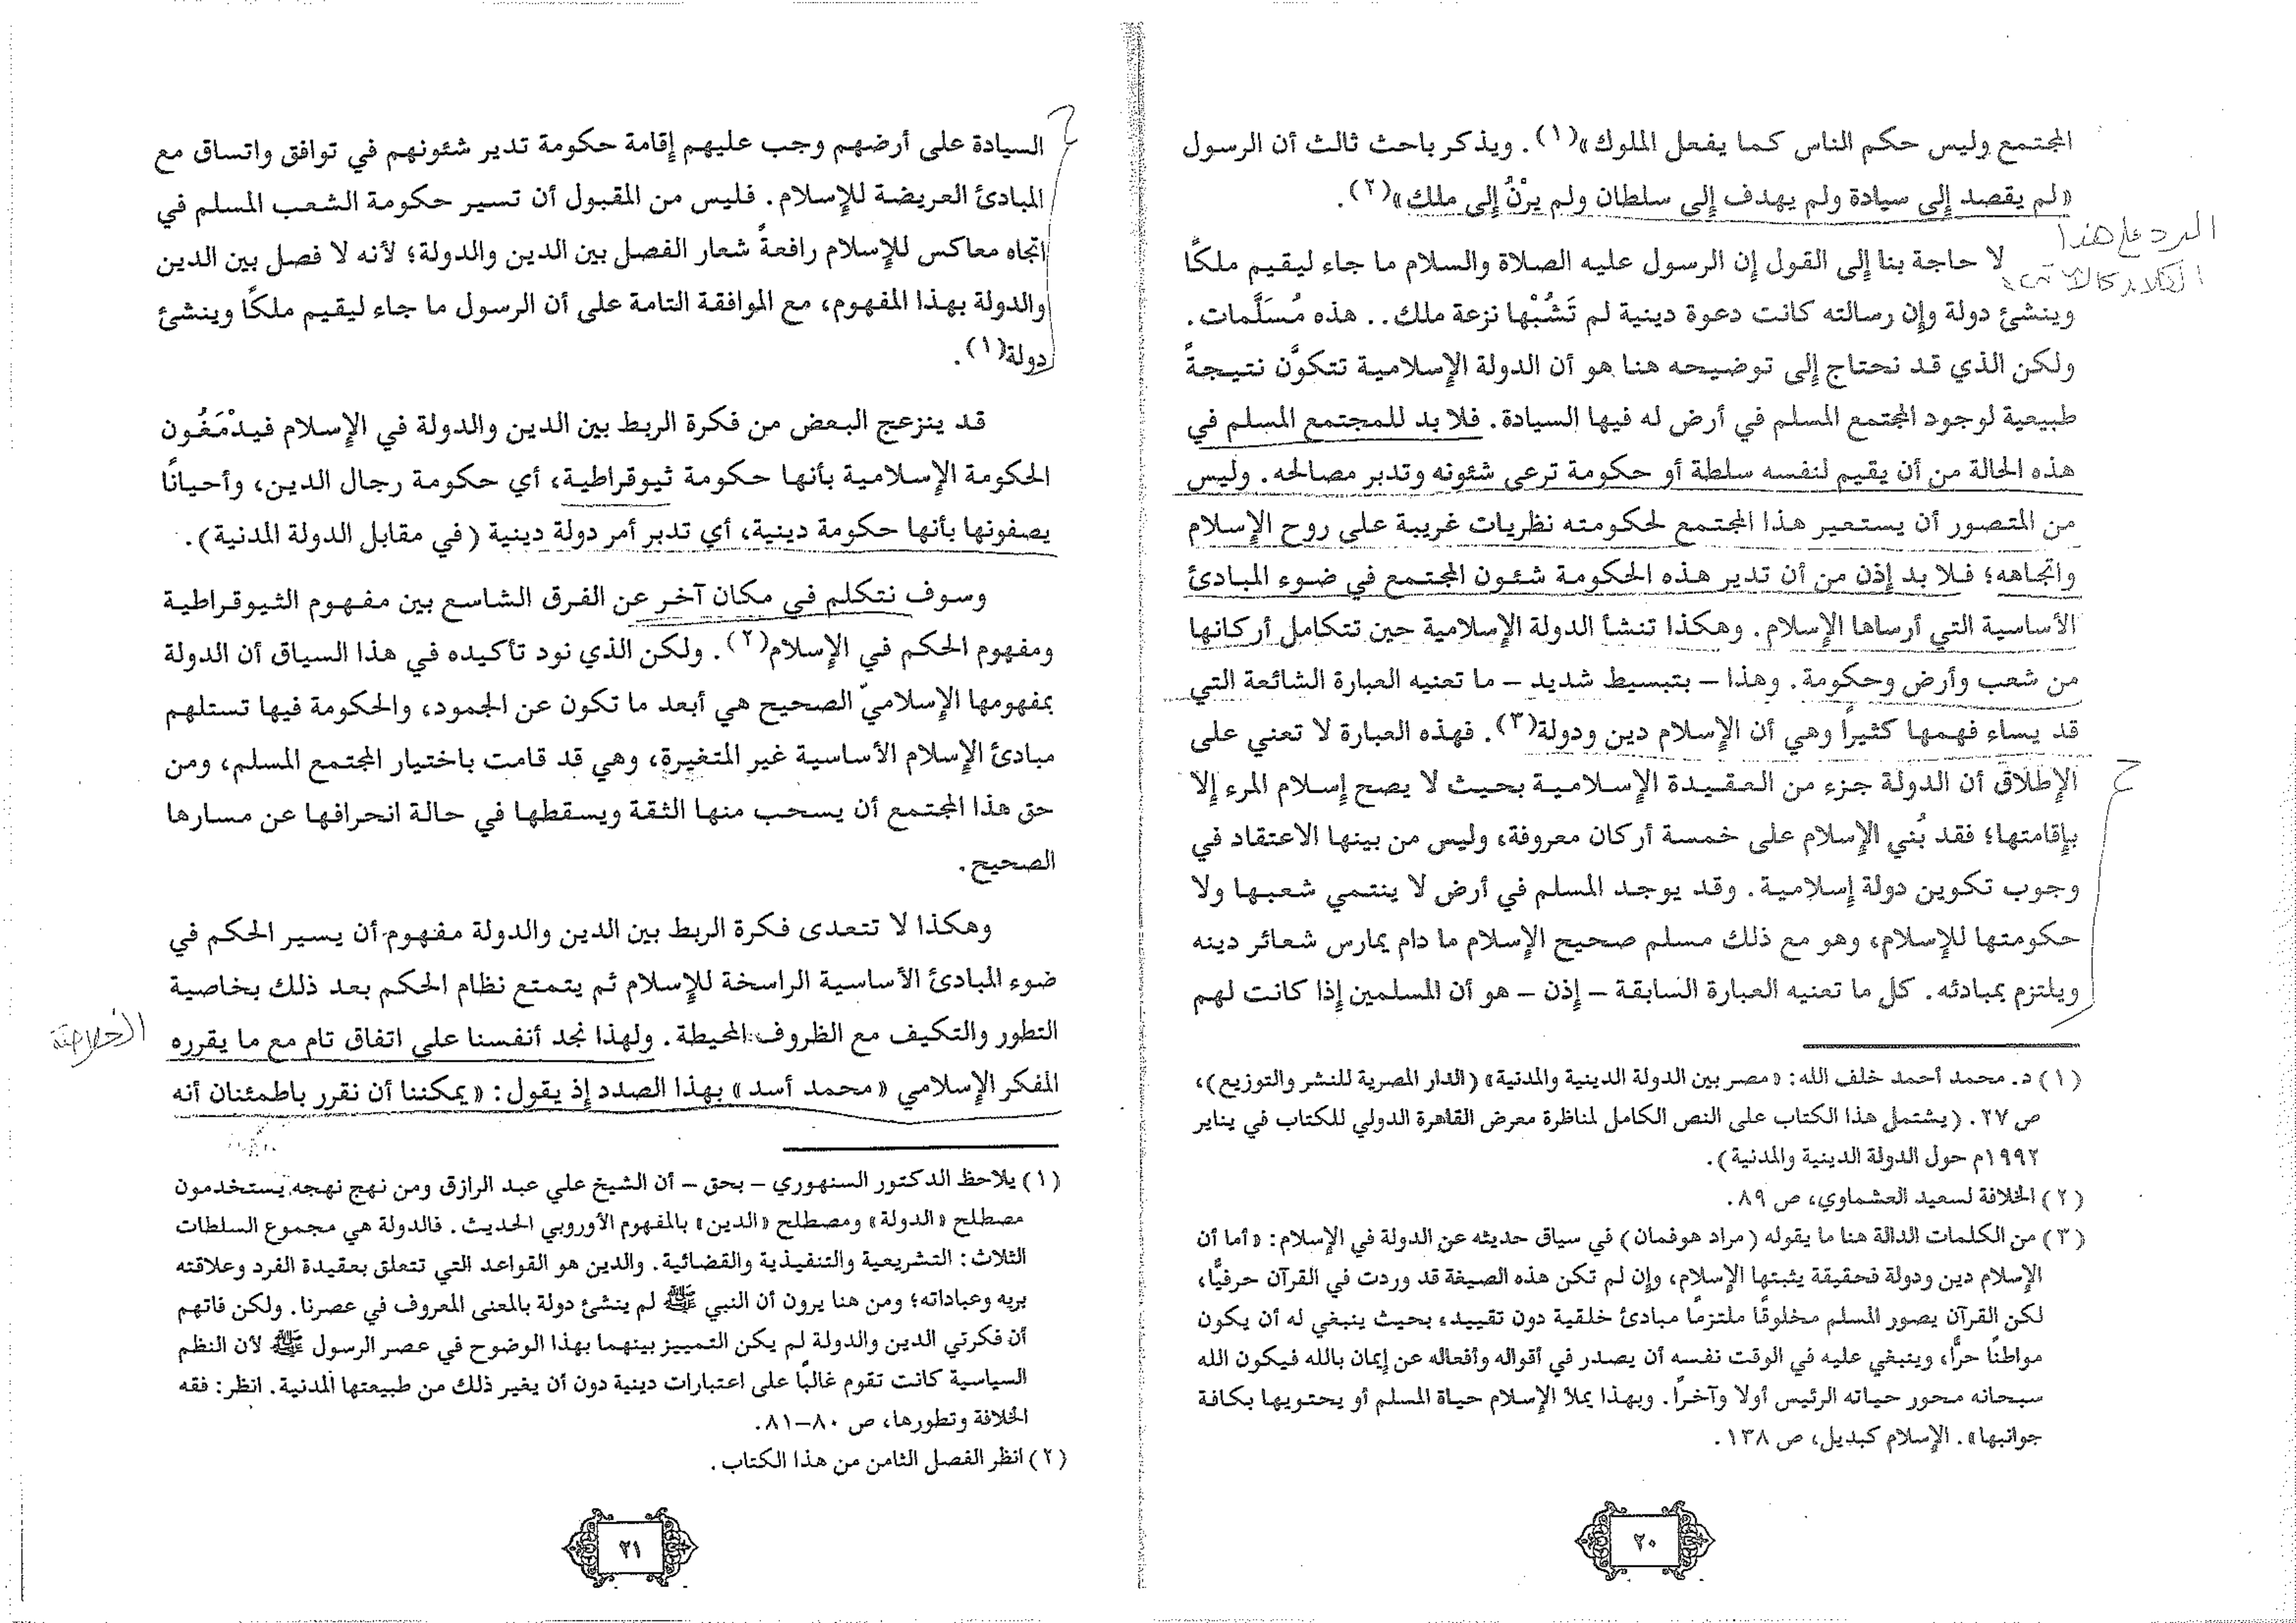 المجتمع وليس حكم الناس كما يفعل الملوك»(١). ويذكر باحث ثالث أن الرسول
«لم يقصد إلى سيادة ولم يهدف إلى سلطان ولم يرْنُ إلى ملك»(٢).
الرد على هذا
الكلام كالآتي
لا حاجة بنا إلى القول إن الرسول عليه الصلاة والسلام ما جاء ليقيم ملكًا
وينشئ دولة وإن رسالته كانت دعوة دينية لم تَشُبْها نزعة ملك.. هذه مُسَلَّمات.
ولكن الذي قد نحتاج إلى توضيحه هنا هو أن الدولة الإسلامية تتكوَّن نتيجةً
طبيعية لوجود المجتمع المسلم في أرض له فيها السيادة. فلا بد للمجتمع المسلم في
هذه الحالة من أن يقيم لنفسه سلطة أو حكومة ترعى شئونه وتدبر مصالحه. وليس
من المتصور أن يستعير هذا المجتمع لحكومته نظريات غريبة على روح الإسلام
واتجاهه؛ فلا بد إذن من أن تدير هذه الحكومة شئون المجتمع في ضوء المبادئ
الأساسية التي أرساها الإسلام. وهكذا تنشأ الدولة الإسلامية حين تتكامل أركانها
من شعب وأرض وحكومة. وهذا – بتبسيط شديد – ما تعنيه العبارة الشائعة التي
قد يساء فهمها كثيراً وهي أن الإسلام دين ودولة(٣). فهذه العبارة لا تعني على
الإطلاق أن الدولة جزء من العقيدة الإسلامية بحيث لا يصح إسلام المرء إلا
بإقامتها؛ فقد بُني الإسلام على خمسة أركان معروفة، وليس من بينها الاعتقاد في
وجوب تكوين دولة إسلامية. وقد يوجد المسلم في أرض لا ينتمي شعبها ولا
حكومتها للإسلام، وهو مع ذلك مسلم صحيح الإسلام ما دام يمارس شعائر دينه
ويلتزم بمبادئه. كل ما تعنيه العبارة السابقة – إذن – هو أن المسلمين إذا كانت لهم
(١) د. محمد أحمد خلف الله: «مصر بين الدولة الدينية والمدنية» (الدار المصرية للنشر والتوزيع)،
ص ٢٧. (يشتمل هذا الكتاب على النص الكامل لمناظرة معرض القاهرة الدولي للكتاب في يناير
١٩٩٢م حول الدولة الدينية والمدنية).
(٢) الخلافة لسعيد العشماوي، ص ٨٩.
(٣) من الكلمات الدالة هنا ما يقوله (مراد هوفمان) في سياق حديثه عن الدولة في الإسلام: «أما أن
الإسلام دين ودولة فحقيقة يثبتها الإسلام، وإن لم تكن هذه الصيغة قد وردت في القرآن حرفيًّا،
لكن القرآن يصور المسلم مخلوقًا ملتزمًا مبادئ خلقية دون تقييد، بحيث ينبغي له أن يكون
مواطنًا حرًّا، وينبغي عليه في الوقت نفسه أن يصدر في أقواله وأفعاله عن إيمان بالله فيكون الله
سبحانه محور حياته الرئيس أولا وآخراً. وبهذا يملأ الإسلام حياة المسلم أو يحتويها بكافة
جوانبها». الإسلام كبديل، ص ١٣٨.
٢٠
السيادة على أرضهم وجب عليهم إقامة حكومة تدير شئونهم في توافق واتساق مع
المبادئ العريضة للإسلام. فليس من المقبول أن تسير حكومة الشعب المسلم في
اتجاه معاكس للإسلام رافعةً شعار الفصل بين الدين والدولة؛ لأنه لا فصل بين الدين
والدولة بهذا المفهوم، مع الموافقة التامة على أن الرسول ما جاء ليقيم ملكًا وينشئ
دولة(١).
قد ينزعج البعض من فكرة الربط بين الدين والدولة في الإسلام فيدْمَغُون
الحكومة الإسلامية بأنها حكومة ثيوقراطية، أي حكومة رجال الدين، وأحيانًا
يصفونها بأنها حكومة دينية، أي تدبر أمر دولة دينية (في مقابل الدولة المدنية).
وسوف نتكلم في مكان آخر عن الفرق الشاسع بين مفهوم الثيوقراطية
ومفهوم الحكم في الإسلام(٢). ولكن الذي نود تأكيده في هذا السياق أن الدولة
بمفهومها الإسلاميّ الصحيح هي أبعد ما تكون عن الجمود، والحكومة فيها تستلهم
مبادئ الإسلام الأساسية غير المتغيرة، وهي قد قامت باختيار المجتمع المسلم، ومن
حق هذا المجتمع أن يسحب منها الثقة ويسقطها في حالة انحرافها عن مسارها
الصحيح.
وهكذا لا تتعدى فكرة الربط بين الدين والدولة مفهوم أن يسير الحكم في
ضوء المبادئ الأساسية الراسخة للإسلام ثم يتمتع نظام الحكم بعد ذلك بخاصية
التطور والتكيف مع الظروف المحيطة. ولهذا نجد أنفسنا على اتفاق تام مع ما يقرره
الخلاصة
المفكر الإسلامي «محمد أسد» بهذا الصدد إذ يقول: «يمكننا أن نقرر باطمئنان أنه
(١) يلاحظ الدكتور السنهوري – بحق – أن الشيخ علي عبد الرازق ومن نهج نهجه يستخدمون
مصطلح «الدولة» ومصطلح «الدين» بالمفهوم الأوروبي الحديث. فالدولة هي مجموع السلطات
الثلاث: التشريعية والتنفيذية والقضائية. والدين هو القواعد التي تتعلق بعقيدة الفرد وعلاقته
بربه وعباداته؛ ومن هنا يرون أن النبي ﷺ لم ينشئ دولة بالمعنى المعروف في عصرنا. ولكن فاتهم
أن فكرتي الدين والدولة لم يكن التمييز بينهما بهذا الوضوح في عصر الرسول ﷺ لأن النظم
السياسية كانت تقوم غالبًا على اعتبارات دينية دون أن يغير ذلك من طبيعتها المدنية. انظر: فقه
الخلافة وتطورها، ص ٨٠–٨١.
(٢) انظر الفصل الثامن من هذا الكتاب.
٢١